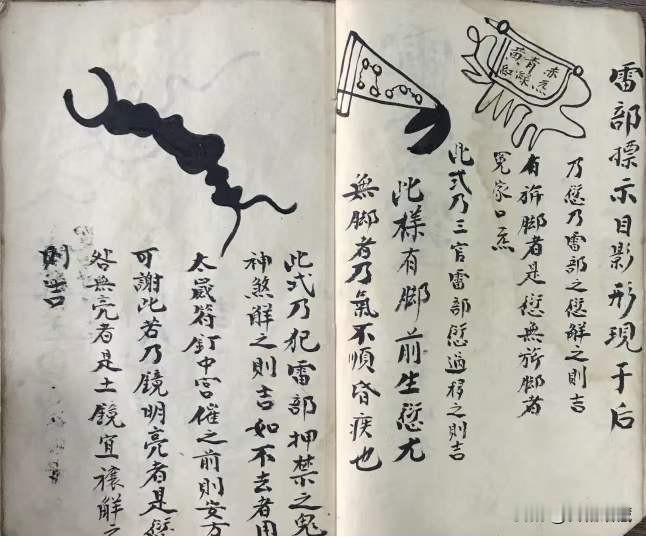 雷部標示目影形現于后
乃愆乃雷部之愆解之則吉
有旂脚者是愆無旂脚者
冤家口焦
黃青赤
紅綠焦
此式乃三官雷部愆過移之則吉
此樣有脚前生愆尤
無脚者乃氣不順昏疾也
此式乃犯雷部押禁之鬼
神煞解之則吉如不去者用
太歲符釘中宮催之前則安方
可謝此若乃鏡明亮者是愆
咎無亮者是土鏡宜禳解之
則吉